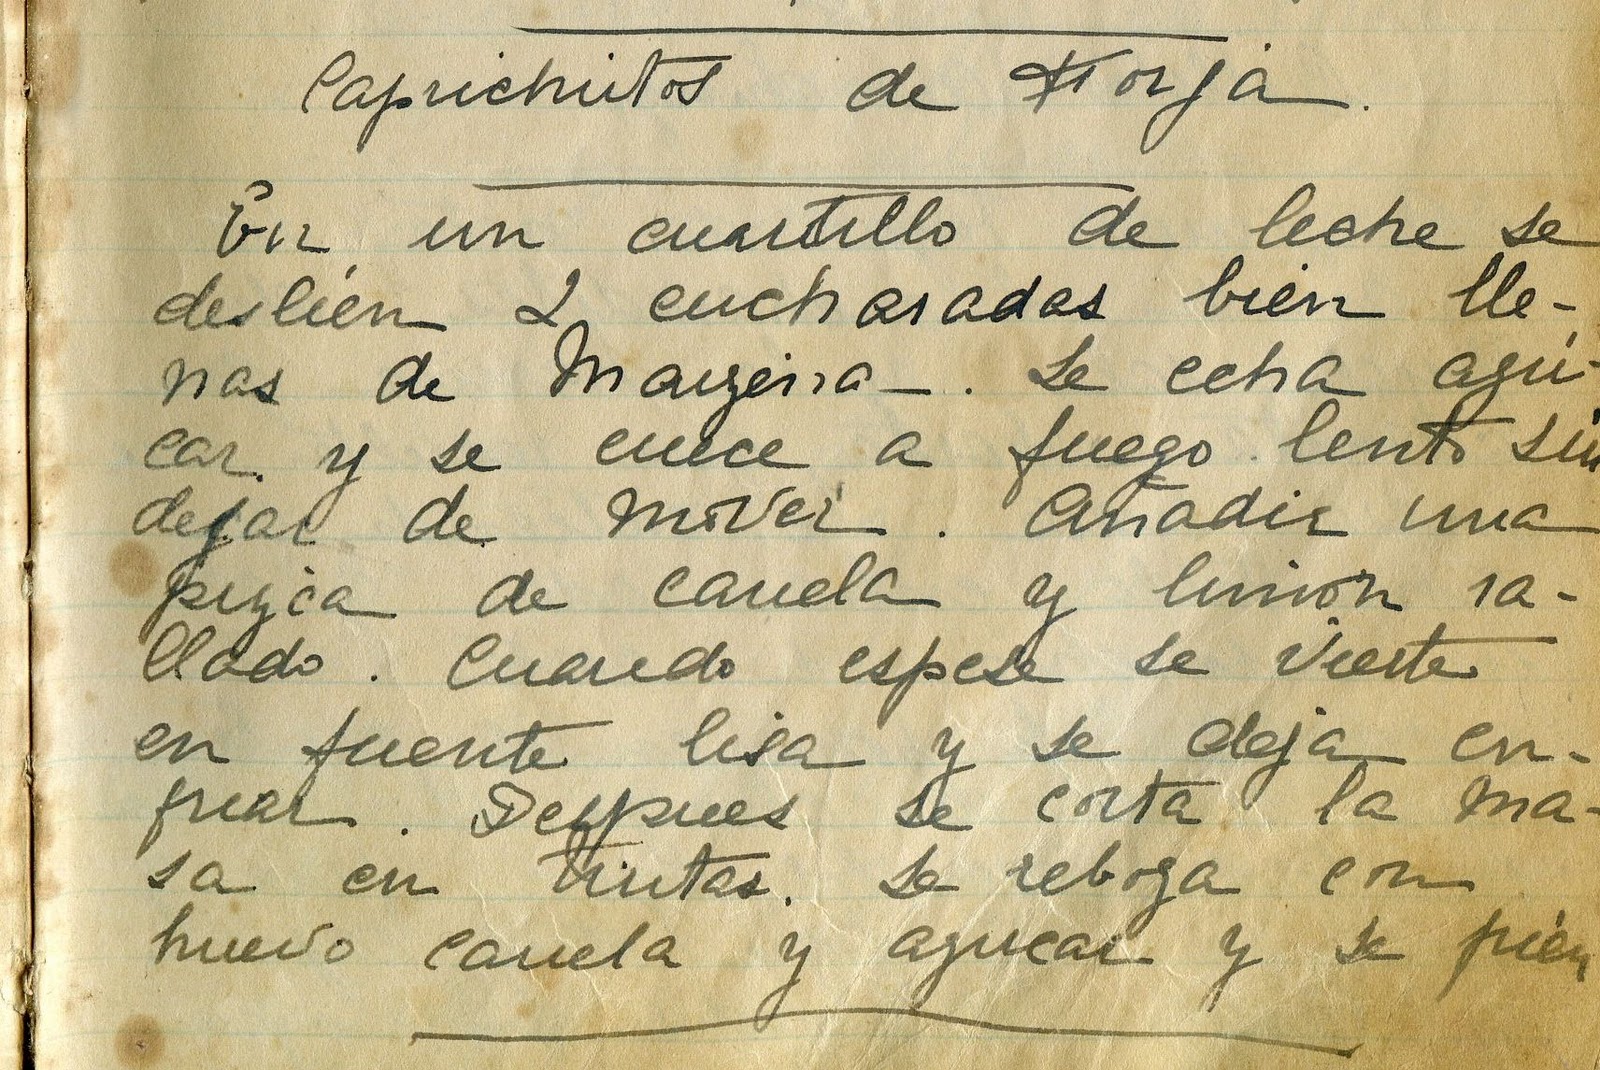 Caprichitos de Torja.
En un cuartillo de leche se
deslien 2 cucharadas bien lle-
nas de Maizena. Se echa azu-
car y se cuece a fuego lento sin
dejar de mover. Añadir una
pizca de canela y limón ra-
llado. Cuando espese se vierte
en fuente lisa y se deja en-
friar. Despues se corta la ma-
sa en tiritas. Se reboza con
huevo canela y azucar y se frien